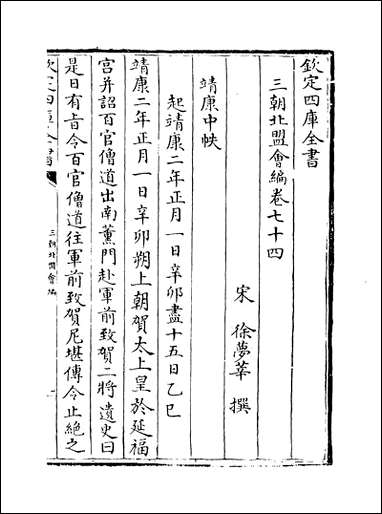 欽定四庫全書
三朝北盟會編卷七十四
宋 徐夢莘 撰
靖康中帙
起靖康二年正月一日辛卯盡十五日乙巳
靖康二年正月一日辛卯朔上朝賀太上皇於延福
宮并詔百官僧道出南薰門赴軍前致賀二將遺史曰
是日有㫖令百官僧道往軍前致賀尼堪傳令止絶之
欽定四庫全書
三朝北盟會編
一